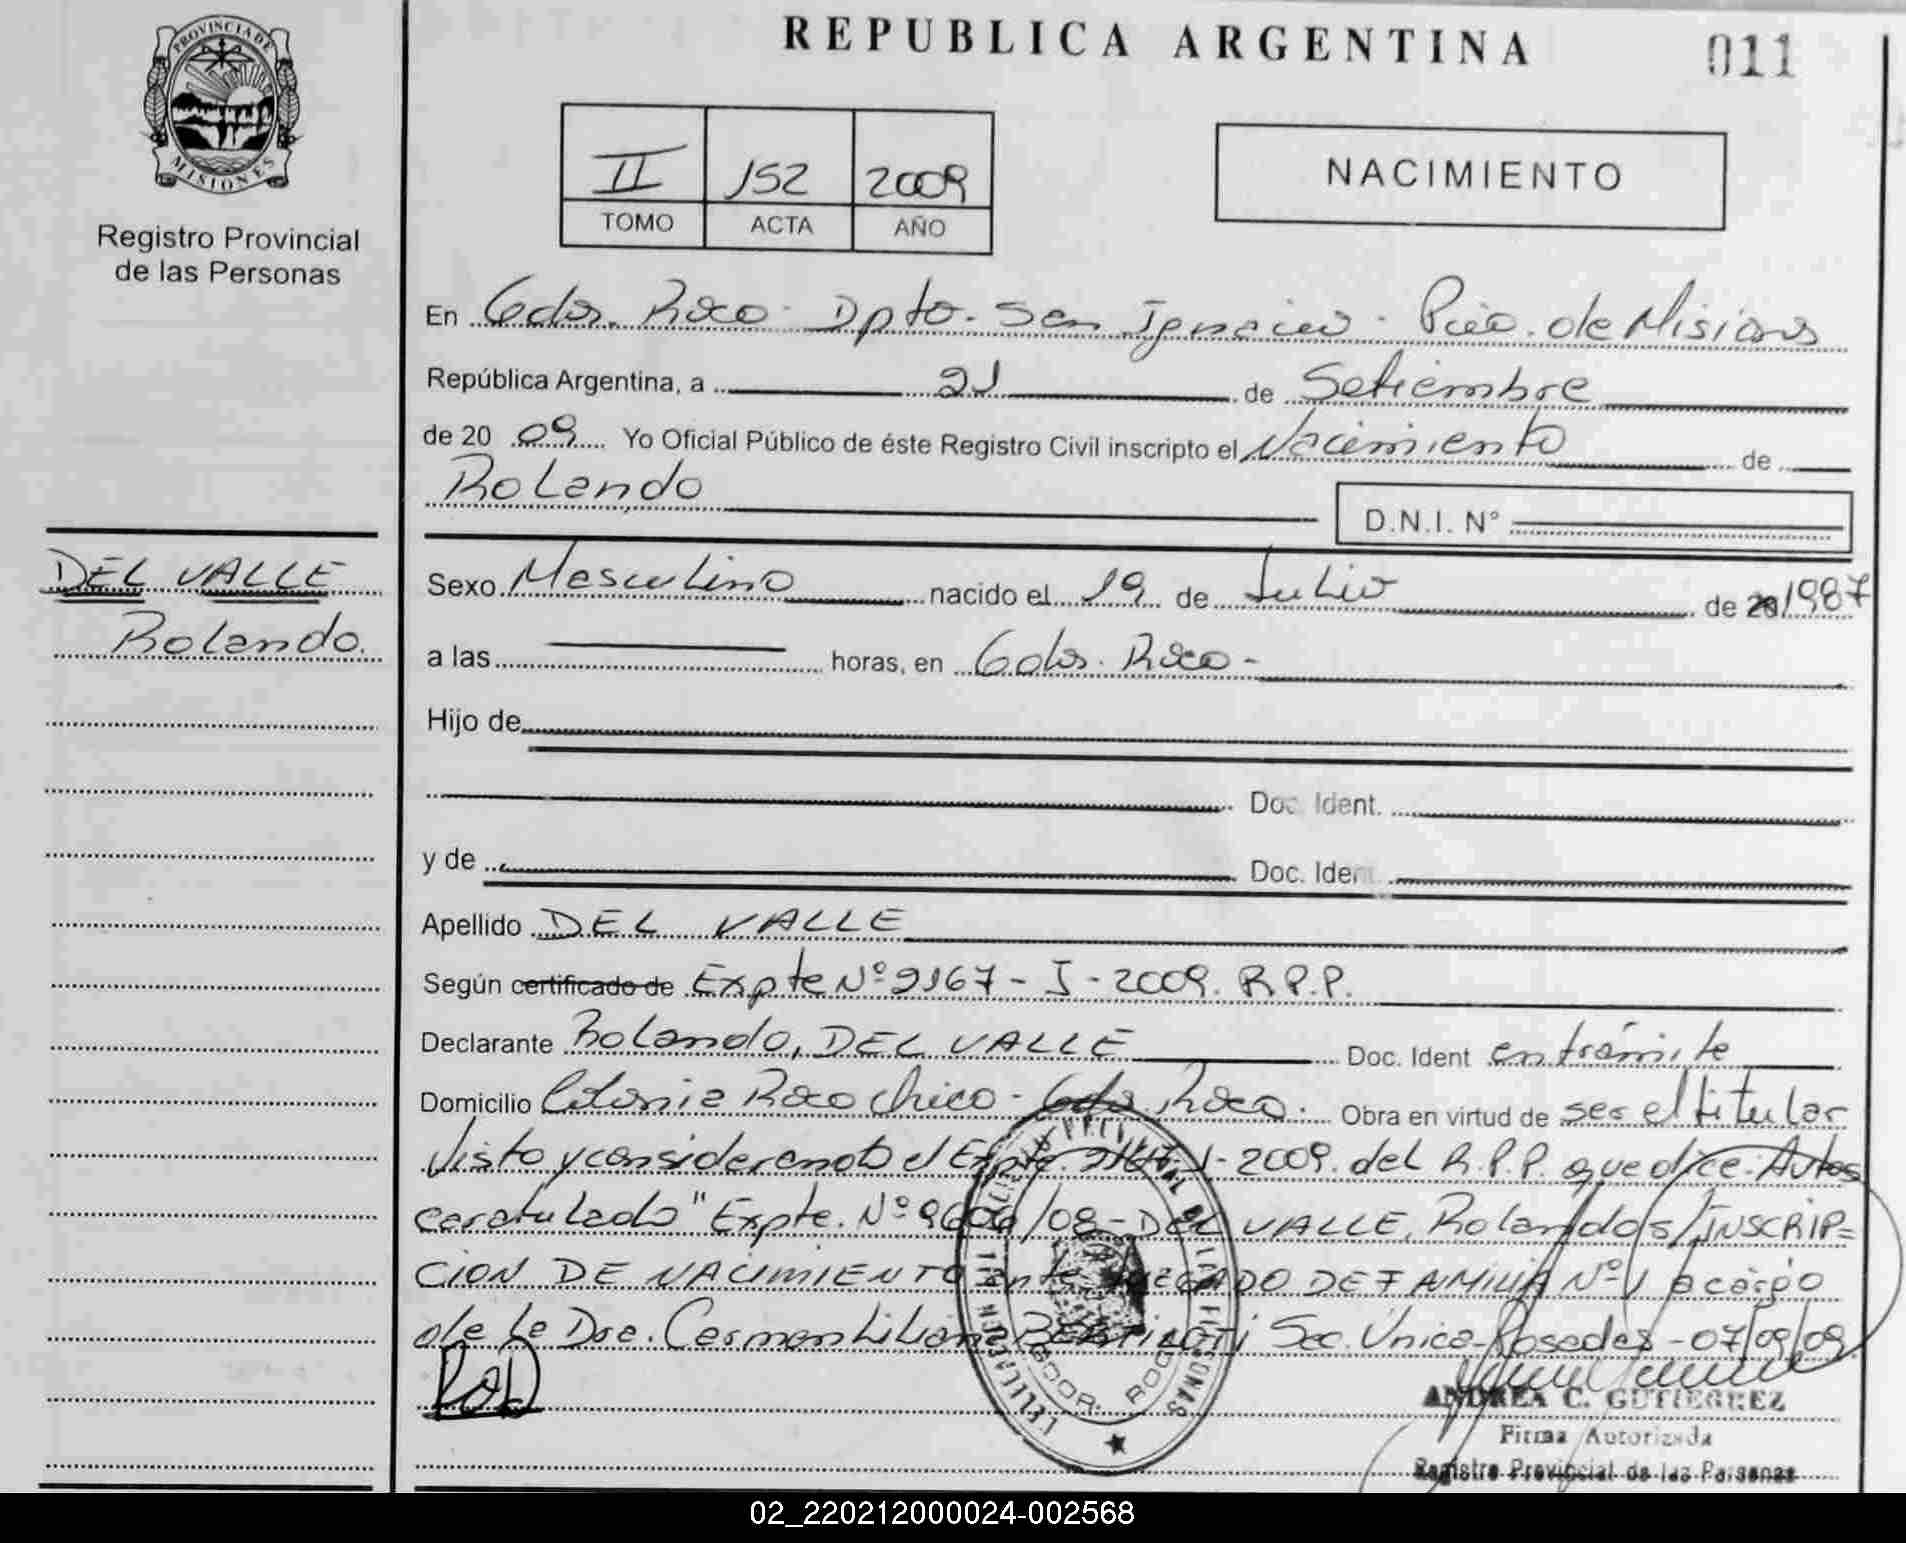 PROVINCIA DE
MISIONES
Registro Provincial
de las Personas
DEL VALLE
Rolando.
REPUBLICA ARGENTINA
011
II 152 2009
TOMO ACTA AÑO
NACIMIENTO
En Gdor. Roca - Dpto. San Ignacio - Pcia. de Misiones
República Argentina, a 21 de Setiembre
de 20 09 Yo Oficial Público de éste Registro Civil inscripto el Nacimiento de
Rolando
D.N.I. N°
Sexo Masculino nacido el 19 de Julio de 20 1987
a las horas, en Gdor. Roca -
Hijo de
Doc. Ident.
y de Doc. Ident.
Apellido DEL VALLE
Según certificado de Expte Nº 2167 - I - 2009. R.P.P.
Declarante Rolando, DEL VALLE Doc. Ident en trámite
Domicilio Colonia Roca Chico - Gdor. Roca. Obra en virtud de ser el titular
Visto y considerando el Expte. 2167-I-2009. del R.P.P. que dice: Autos
caratulado "Expte. Nº /08 - DEL VALLE, Rolando s/INSCRIP=
CION DE NACIMIENTO ante JUZGADO DE FAMILIA Nº 1 a cargo
de la Dra. Carmen Liliana Sec. Única - Posadas - 07/09/09
RoD
GDOR. ROCA
ANDREA C. GUTIERREZ
Firma Autorizada
Registro Provincial de las Personas
02_220212000024-002568